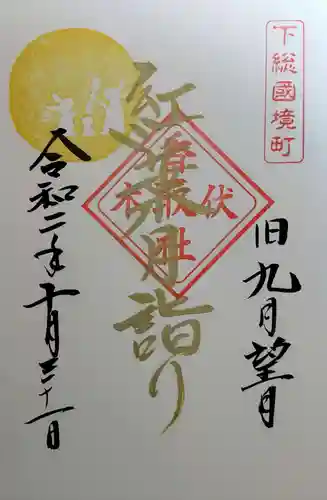 下総國境町
旧九月望月
紅葉月詣り
伏木香取社
令和二年十月三十一日